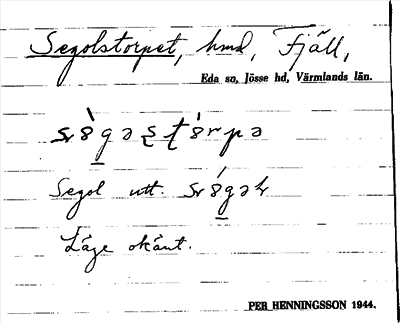 Segolstorpet, hmd, Fjäll,
Eda sn, Jösse hd, Värmlands län.
Segol utt.
Läge okänt.
PER HENNINGSSON 1944.